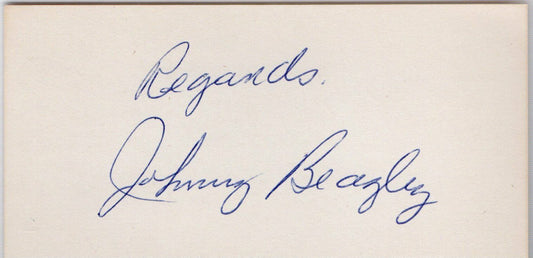 Regards.
Johnny Beazley